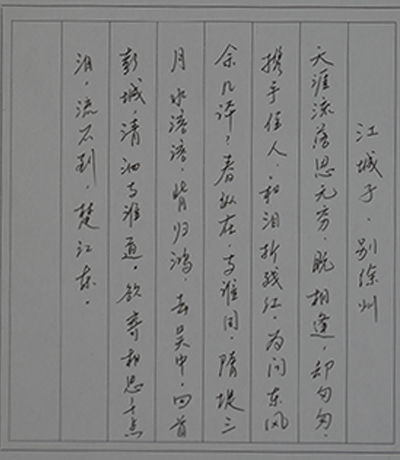 江城子·别徐州
天涯流落思无穷，既相逢，却匆匆。
携手佳人，和泪折残红，为问东风
余几许？春纵在，与谁同，隋堤三
月水溶溶，背归鸿，去吴中，回首
彭城，清泗与淮通，欲寄相思千点
泪，流不到，楚江东。